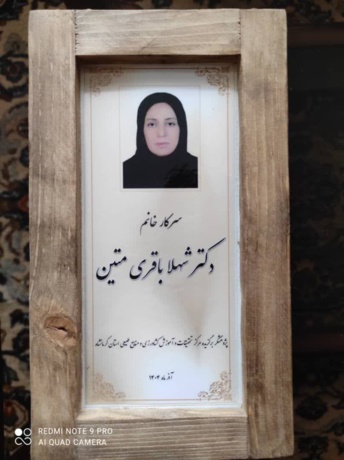 سرکار خانم
دکتر شهلا باقری متین
پژوهشگر برگزیده مرکز تحقیقات و آموزش کشاورزی و منابع طبیعی استان کرمانشاه
آذر ماه ۱۴۰۲
REDMI NOTE 9 PRO
AI QUAD CAMERA